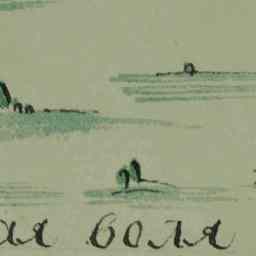 ая воля